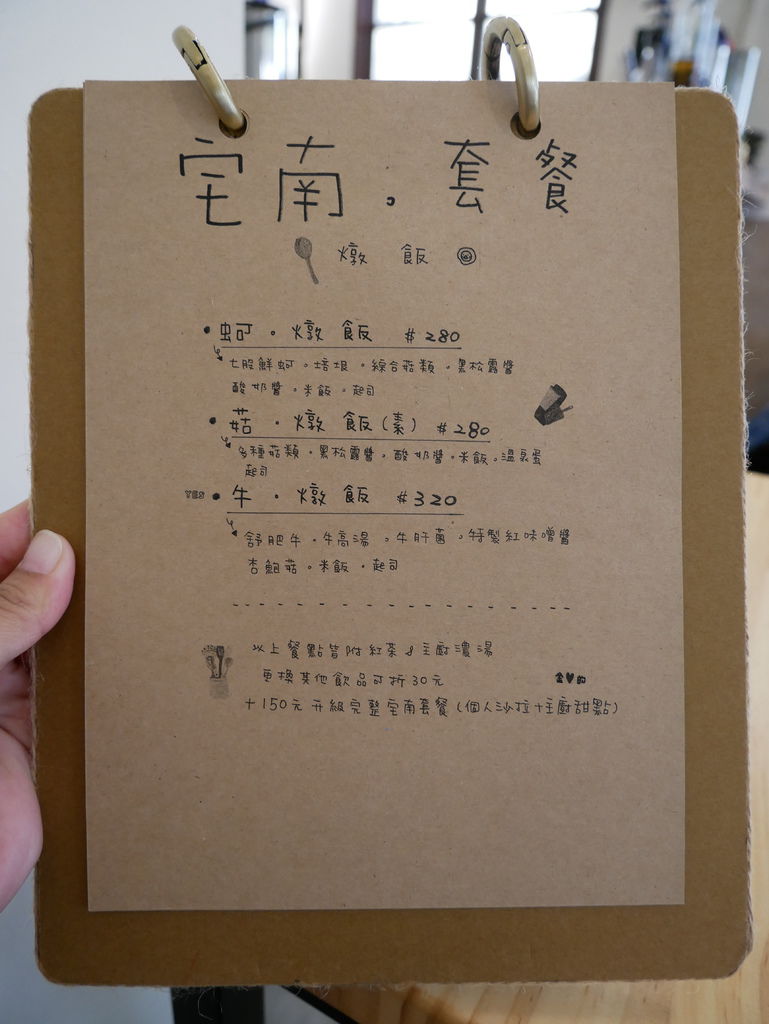 宅南・套餐
燉 飯
蚵・燉飯 #280
七股鮮蚵。培根。綜合菇類。黑松露醬
酸奶醬。米飯。起司
菇・燉飯(素) #280
多種菇類。黑松露醬。酸奶醬。米飯。溫泉蛋
起司
YES 牛・燉飯 #320
舒肥牛。牛高湯。牛肝菌。特製紅味噌醬
杏鮑菇。米飯。起司
以上餐點皆附紅茶&主廚濃湯
更換其他飲品可折30元
+150元升級完整宅南套餐(個人沙拉+主廚甜點)